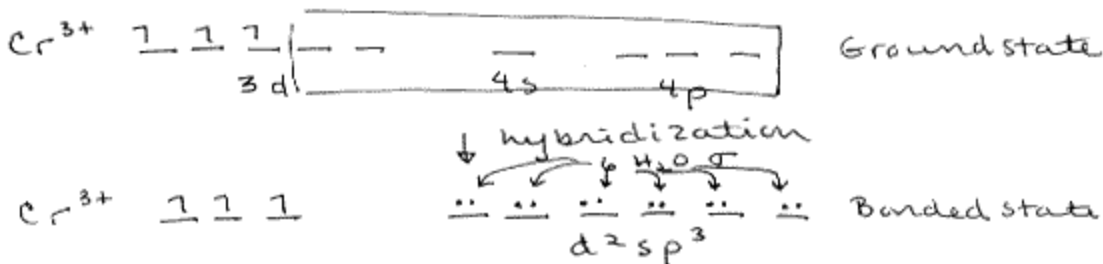 Cr³⁺ 1 1 1 Ground state
3d 4s 4p
↓ hybridization
6 H₂O σ
Cr³⁺ 1 1 1 Bonded state
d²sp³